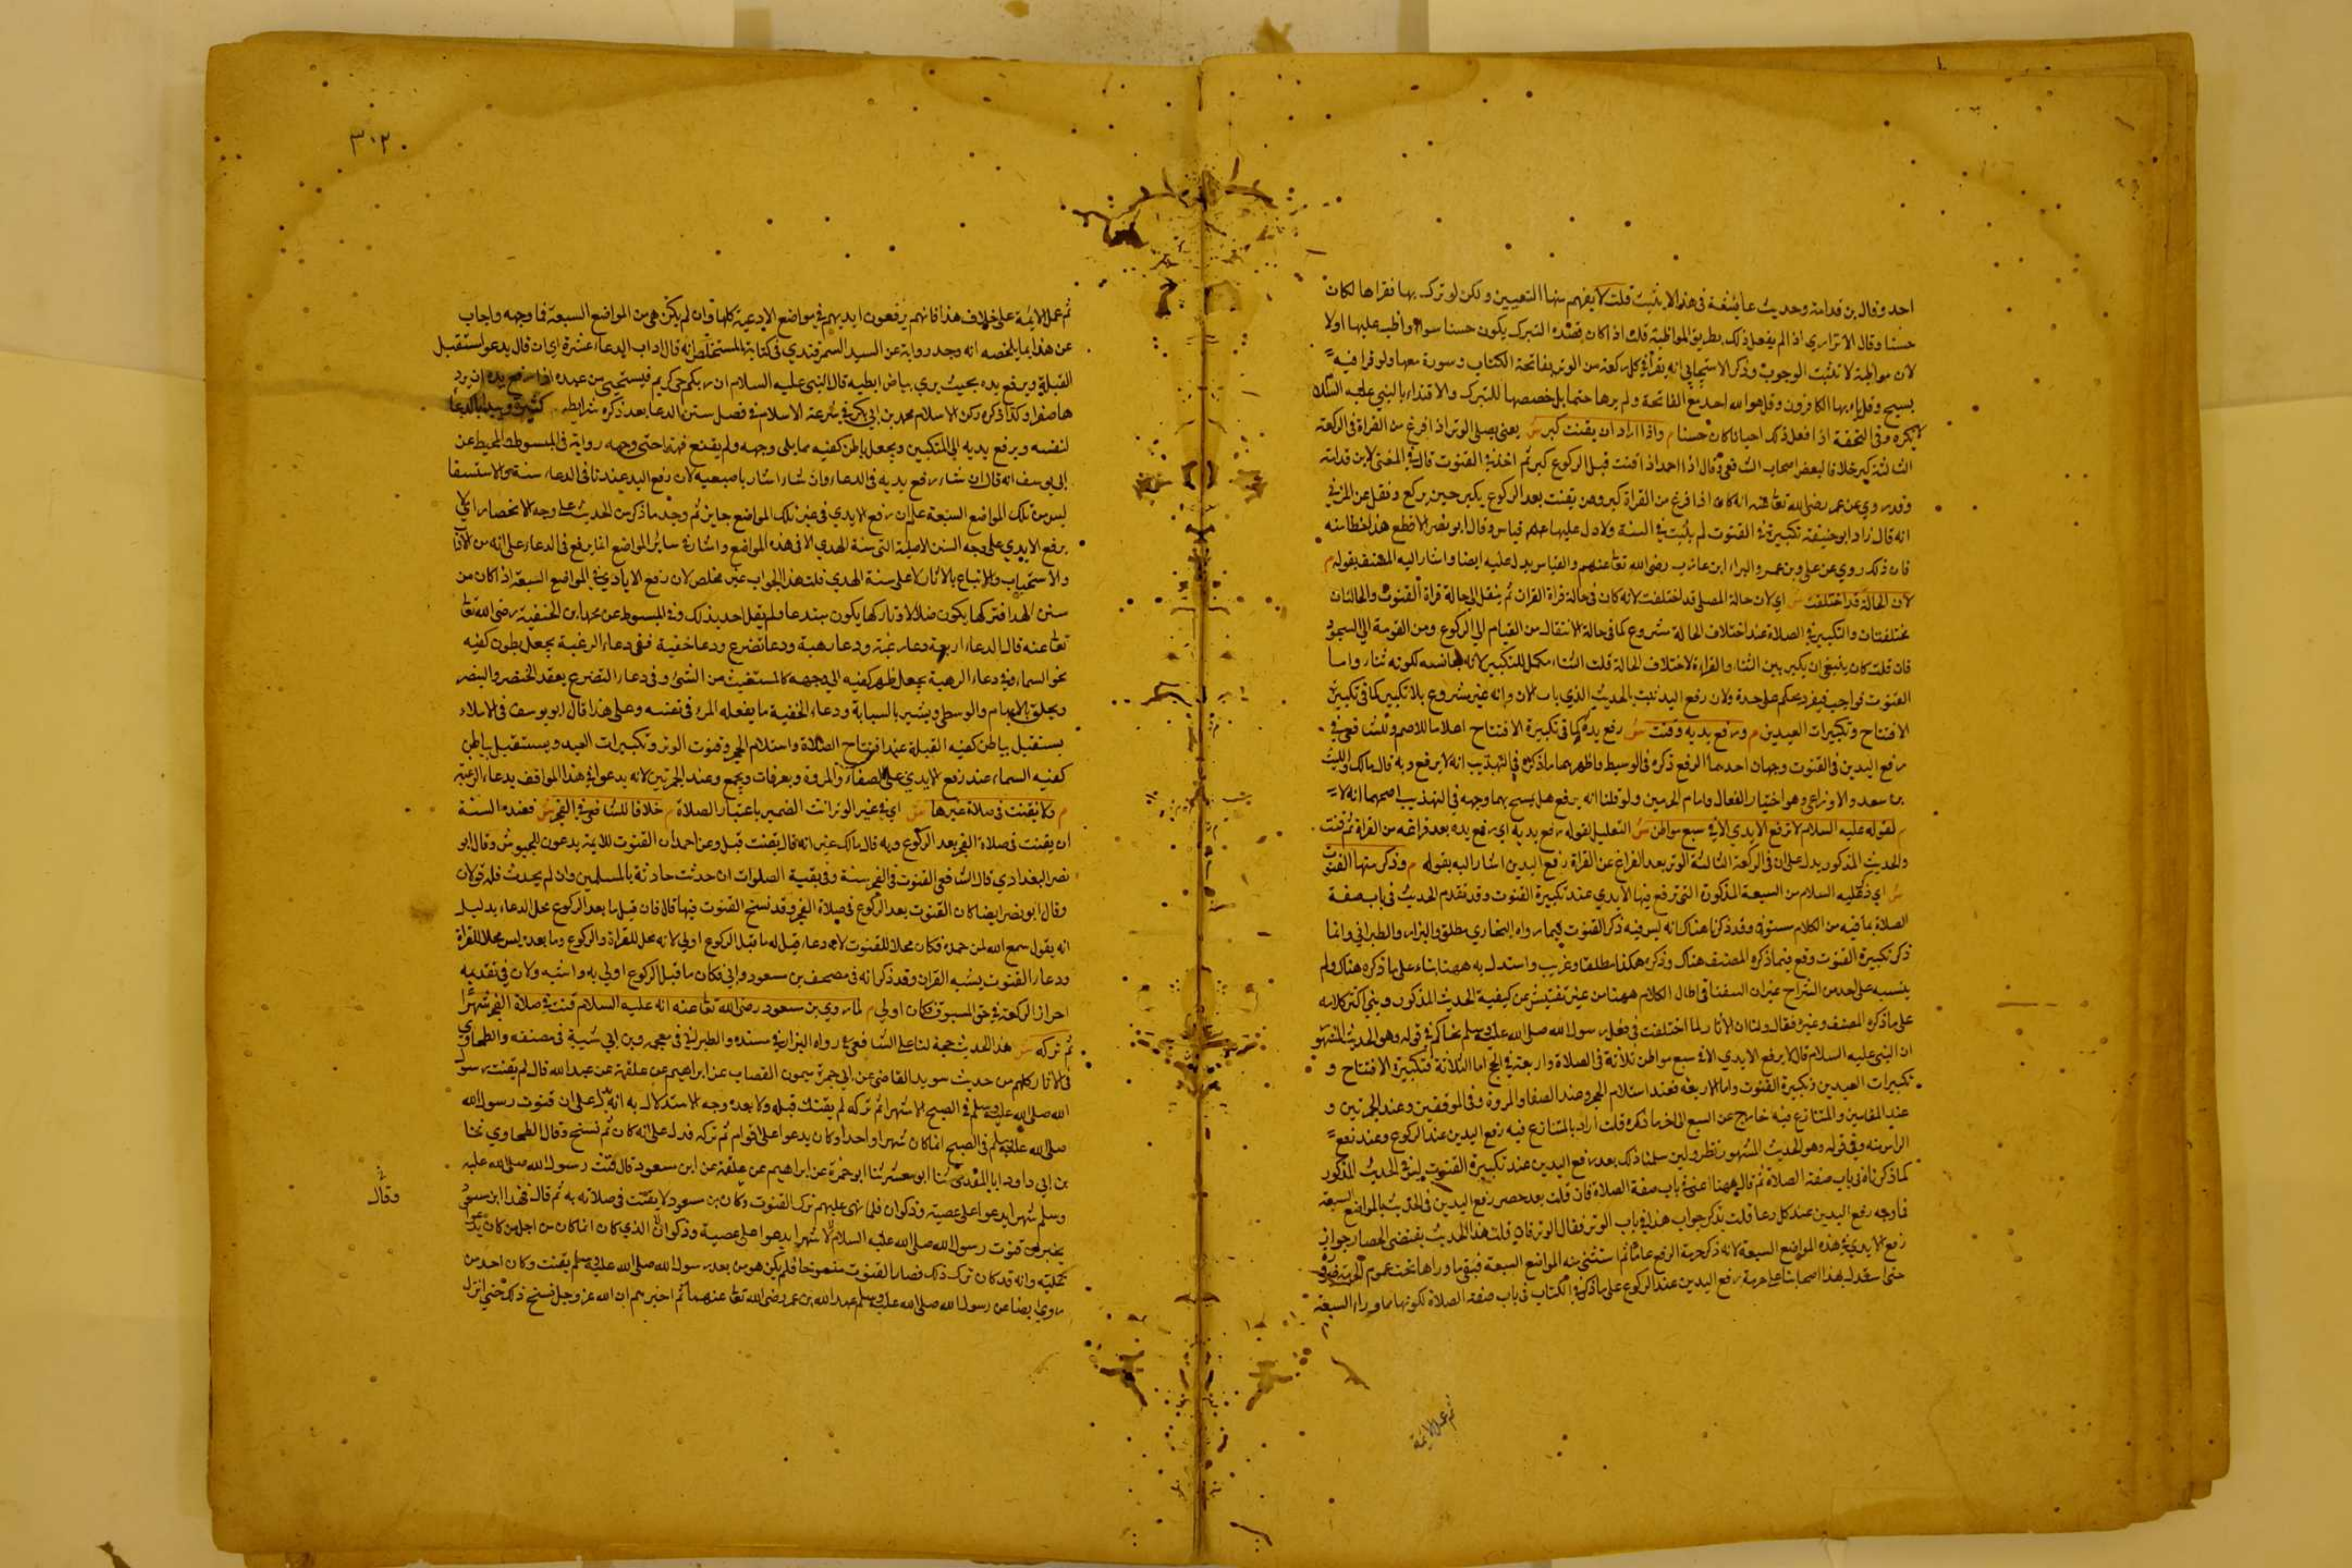 احمد وقال بن قدامة وحديث عايشة في هذا لا يثبت قلت لا يفهم منها التعيين ولكن لو تركـ بها فقراها لكان
حسنا وقال الاترازي اذا لم يفعل ذلك بطريق المواظبة قلت اذا كان قصده التبرك يكون حسنا سواء واظب عليها اولا
لان مواظبة لا تثبت الوجوب وذكر الاسبيجابي انه يقرأ في كل ركعة من الوتر بفاتحة الكتاب وسورة معها ولو قرا فيه
بسبح وقل ياء يها الكافرون وقل هو الله احد مع الفاتحة ولم يرها حتما بل خصصها للتبرك والاقتداء بالنبي عليه السلام
لا يكره وفي التحفة اذا فعل ذلك احيانا كان حسنا م واذا اراد ان يقنت كبر ش يعني يصلي الوتر اذا فرغ من القراة في الركعة
الثالثة كبر خلافا لبعض اصحاب الشافعي وقال احمد اذا قنت قبل الركوع كبر ثم اخذ في القنوت قال في المغني لابن قدامة
وقد روي عن عمر رضي الله تعا عنه انه كان اذا فرغ من القراة كبر ومن يقنت بعد الركوع يكبر حين يركع ونقل عن المزني
انه قال زاد ابو حنيفة تكبيرة في القنوت لم يثبت في السنة ولا دل عليها قياس وقال ابو نصر الاقطع هذا خطا منه
فان ذلك روي عن علي وبن عمر والبراء ابن عازب رضي الله تعا عنهم والقياس يدل عليه ايضا واشار اليه المصنف بقوله م
لان الحالة قد اختلفت ش اي لان حالة المصلي قد اختلفت لانه كان في حالة قراة القران ثم ينقل الي حالة قراة القنوت والحالتان
مختلفتان والتكبير في الصلاة عند اختلاف الحالة مشروع كما في حالة الانتقال من القيام الي الركوع ومن القومة الي السجود
فان قلت كان ينبغي ان يكبر بين الثناء والقراءة لاختلاف الحالة قلت الثناء مكمل للتكبير لانه يجانسه لكونه ثناء واما
القنوت فواجب فيفرد بحكم على حدة ولان رفع اليد ثبت بالحديث الذي ياءت الان وانه غير مشروع بلا تكبير كما في تكبيرة
الافتتاح وتكبيرات العيدين م ورفع يديه وقنت ش رفع يده كما في تكبيرة الافتتاح اعلاما للاصم وللشافعي في
رفع اليدين في القنوت وجهان احدهما الرفع ذكره في الوسيط واظهرهما ما ذكره في التهذيب انه لا يرفع وبه قال مالك والليث
بن سعد والاوزاعي وهو اختيار القفال وامام الحرمين ولو قلنا انه يرفع هل يمسح بهما وجهه في التهذيب اصحهما انه لا
م لقوله عليه السلام لا ترفع الايدي الا في سبع مواطن ش التعليل لقوله رفع يديه اي رفع يده بعد فراغه من القراة ثم قنت
والحديث المذكور يدل على ان في الركعة الثالثة الوتر بعد الفراغ عن القراة رفع اليدين اشار اليه بقوله م وذكر منها القنوت
ش اي ذكر عليه السلام من السبعة المذكورة التي ترفع فيها الايدي عند تكبيرة القنوت وقد تقدم الحديث في باب صفة
الصلاة بما فيه من الكلام مستوفي وقد ذكرنا هناك انه ليس فيه ذكر القنوت فيما رواه البخاري مطلق والبزار والطبراني وانما
ذكر تكبيرة القنوت وقع فيما ذكره المصنف هناك وذكره هكذا مطلقا وغريب واستدل به ههنا بناء على ما ذكره هناك ولم
ينسبه على احد من الشراح غير ان السغناقي اطال الكلام ههنا من غير تفتيش عن كيفية الحديث المذكور وبني اكثر كلامه
على ما ذكره المصنف وغيره فقال ولنا ان الاثار لما اختلفت في فعل رسول الله صلى الله عليه وسلم تحاكم في قوله وهو الحديث المشهور
ان النبي عليه السلام قال لا يرفع الايدي الا في سبع مواطن ثلاثة في الصلاة واربعة في الحج اما الثلاثة فتكبيرة الافتتاح و
تكبيرات العيدين وتكبيرة القنوت واما الاربعة فعند استلام الحجر وعند الصفا والمروة وفي الموقفين وعند الجمرتين و
عند المقامين والمتنازع فيه خارج عن السبع الي اخر ما ذكره قلت اراد بالمتنازع فيه رفع اليدين عند الركوع وعند رفع
الراس منه وفي قوله وهو الحديث المشهور نظر ولين سلمنا ذلك بعد رفع اليدين عند تكبيرة القنوت ليس في الحديث المذكور
كما ذكرناه في باب صفة الصلاة ثم قال ههنا اعني في باب صفة الصلاة فان قلت بعد حصر رفع اليدين في الحديث بالمواضع السبعة
فما وجه رفع اليدين عند كل دعا قلت يذكر جواب هذا في باب الوتر فقال الوتر فان قلت هذا الحديث يقتضي انحصار جواز
رفع الايدي في هذه المواضع السبعة لانه ذكر حرمة الرفع عاما ثم استثني منه المواضع السبعة فبقي ما وراها تحت عموم الحرمة
حتى استدل بهذا اصحابنا على حرمة رفع اليدين عند الركوع على ما ذكر في الكتاب في باب صفة الصلاة لكونها مما وراء السبعة
ثم عمل الايمة
٣٠٢
ثم عمل الايمة على خلاف هذا فانهم يرفعون ايديهم في مواضع الادعية كلها وان لم يكن هي من المواضع السبعة فما وجهه واجاب
عن هذا بما يلخصه انه وجد رواية عن السيد السمرقندي في كتابه المستخلص انه قال اداب الدعاء عشرة اي ان قال يدعو مستقبل
القبلة ويرفع يده بحيث يري بياض ابطيه قال النبي عليه السلام ان ربكم حي كريم فيستحيي من عبده اذا رفع يده ان يرد
هما صفرا وكذا ذكره ركن الاسلام محمد بن ابي بكر في شرعة الاسلام في فصل سنن الدعا بعد ذكره شرايطه كثيرة ويبدا بالدعا
لنفسه ويرفع يديه الي المنكبين ويجعل باطن كفيه مما يلي وجهه ولم يقنع فيها حتى وجهه رواية في المبسوط والمحيط عن
ابي يوسف انه قال ان شاء رفع يديه في الدعاء وان شاء اشار باصبعيه لان رفع اليد عندنا في الدعاء سنة والاستسقا
ليس من تلك المواضع السبعة علم ان رفع الايدي في غير تلك المواضع جايز ثم وجد ما ذكر من الحديث على وجه الانحصار اي لا
يرفع الايدي على وجه السنن الاصلية التي سنة الهدي الا في هذه المواضع واما في ساير المواضع انما يرفع في الدعاء على انه من الاداب
والاستحباب والاتباع بالاثار لا على سنة الهدي قلت هذا الجواب غير مخلص لان رفع الايادي في المواضع السبعة اذا كان من
سنن الهدا فتركها يكون ضلالا وتاركها يكون مبتدعا فلم يقل احد بذلك وفي المبسوط عن محمد ابن الحنفية رضي الله تعا
تعا عنه قال الدعاء اربعة دعاء رغبة ودعا رهبة ودعا تضرع ودعا خفية ففي دعاء الرغبة يجعل بطون كفيه
نحو السماء وفي دعاء الرهبة يجعل ظهر كفيه الي وجهه كالمستغيث من الشئ وفي دعاء التضرع يعقد الخنصر والبنصر
ويحلق الابهام والوسطي ويشير بالسبابة ودعاء الخفية ما يفعله المرء في نفسه وعلى هذا قال ابو يوسف في الاملاء
يستقبل بباطن كفيه القبلة عند افتتاح الصلاة واستلام الحجر وقنوت الوتر وتكبيرات العيد ويستقبل بباطن
كفيه السماء عند رفع الايدي على الصفاء والمروة وبعرفات وبجمع وعند الجمرتين لانه يدعو في هذا المواقف بدعاء الرغبة
م ولا يقنت في صلاة غيرها ش اي في غير الوتر انث الضمير باعتبار الصلاة م خلافا للشافعي في الفجر ش فعنده السنة
ان يقنت في صلاة الفجر بعد الركوع وبه قال مالك غير انه قال يقنت قبل وعن احمد ان القنوت للايمة يدعون للجيوش وقال ابو
نصر البغدادي قال الشافعي القنوت في الفجر سنة وفي بقية الصلوات ان حدثت حادثة بالمسلمين وان لم يحدث فله قولان
وقال ابو نصر ايضا كان القنوت بعد الركوع في صلاة الفجر وقد نسخ القنوت فيها قال فان قيل ما بعد الركوع محل الدعاء بدليل
انه يقول سمع الله لمن حمده فكان محلا للقنوت لانه دعاء قيل له ما قبل الركوع اولي لانه محل للقراة والركوع وما بعده ليس محلا للقراة
ودعاء القنوت يشبه القران وقد ذكر انه في مصحف بن مسعود وابي فكان ما قبل الركوع اولي به واشبه ولان في تقديمه
احراز الركعة في حق المسبوق فكان اولي م لما روي بن مسعود رضي الله تعا عنه انه عليه السلام قنت في صلاة الفجر شهرا
ثم تركه ش هذا الحديث حجة لنا على الشافعي في رواه البزار في مسنده والطبراني في معجمه وبن ابي شيبة في مصنفه والطحاوي
في الاثار كلهم من حديث سويد القاضي عن ابي حمزة ميمون القصاب عن ابراهيم عن علقمة عن عبد الله قال لم يقنت رسول
الله صلى الله عليه وسلم في الصبح الا شهرا ثم تركه لم يقنت قبله ولا بعده وجه الاستدلال به انه دل على ان قنوت رسول الله
صلى الله عليه وسلم في الصبح انما كان شهرا واحدا وكان يدعو اعلى اقوام ثم تركه فدل على انه كان ثم نسخ وقال الطحاوي حدثنا
بن ابي داود المقدمي ثنا ابو معشر ثنا ابو حمزة عن ابراهيم عن علقمة عن ابن مسعود قال قنت رسول الله صلى الله عليه
وسلم شهرا يدعوا على عصية وذكوان فلما ظهر عليهم ترك القنوت وكان بن مسعود لا يقنت في صلاته به ثم قال فهذا ابن مسعود
يخبر ان قنوت رسول الله صلى الله عليه السلام لا شهرا يدعوا على عصية وذكوان الذي كان انما كان من اجل من كان يدعوا
عليه وانه قد كان ترك ذلك فصار القنوت منسوخا فلم يكن هو من بعد رسول الله صلى الله عليه وسلم يقنت وكان احد من
روي ايضا عن رسول الله صلى الله عليه وسلم عبد الله بن عمر رضي الله تعا عنهما ثم اخبرهم ان الله عز وجل نسخ ذلك حتى انزل
وقال